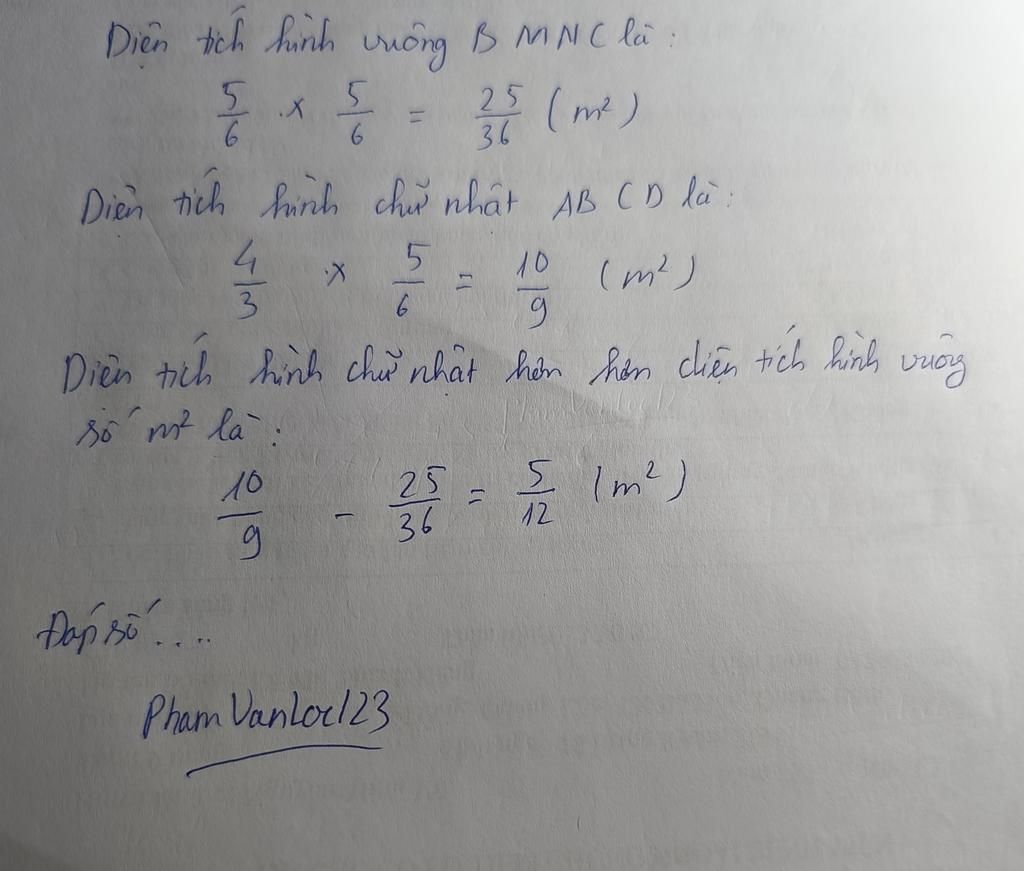 Diện tích hình vuông BMNC là:
5/6 × 5/6 = 25/36 (m²)
Diện tích hình chữ nhật ABCD là:
4/3 × 5/6 = 10/9 (m²)
Diện tích hình chữ nhật hơn hơn diện tích hình vuông
số m² là:
10/9 - 25/36 = 5/12 (m²)
Đáp số....
PhamVanLoc123